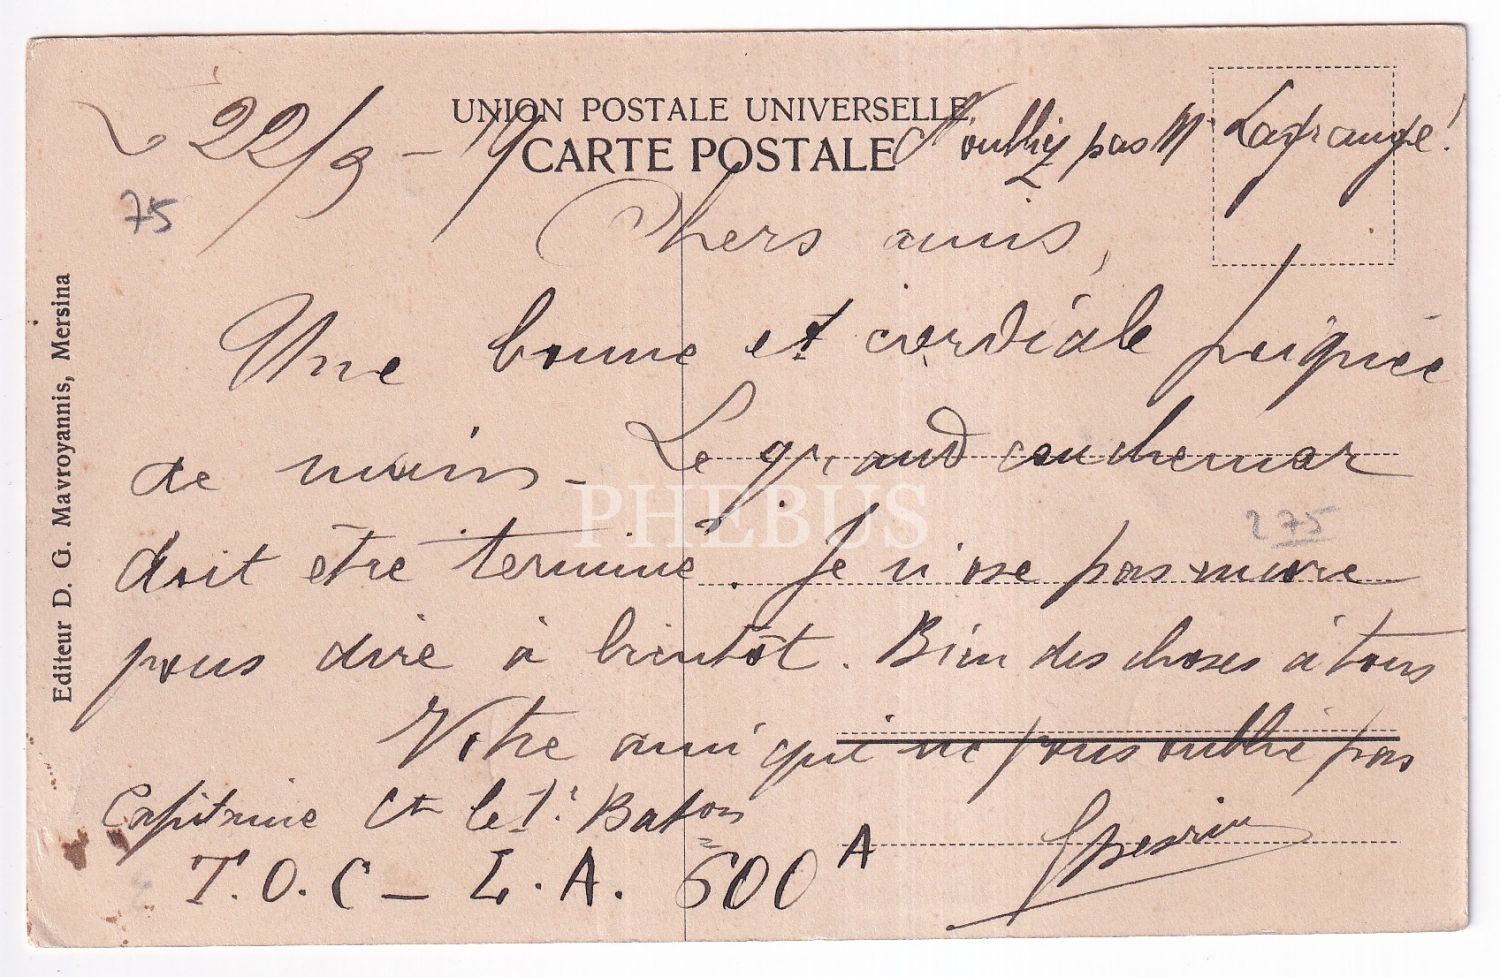 UNION POSTALE UNIVERSELLE
CARTE POSTALE
22/9 - 19
N'oubliez pas Mr Lagrange!
75
Chers amis,
Une bonne et cordiale poignée
de main - Le grand cauchemar
275
doit être terminé. Je n'ose pas encore
vous dire à bientôt. Bien des choses à tous
Votre ami qui ne vous oublie pas
Capitaine Ct le 1er Baton
T.O.C - L.A. 600 A
Editeur D. G. Mavroyannis, Mersina
PHEBUS